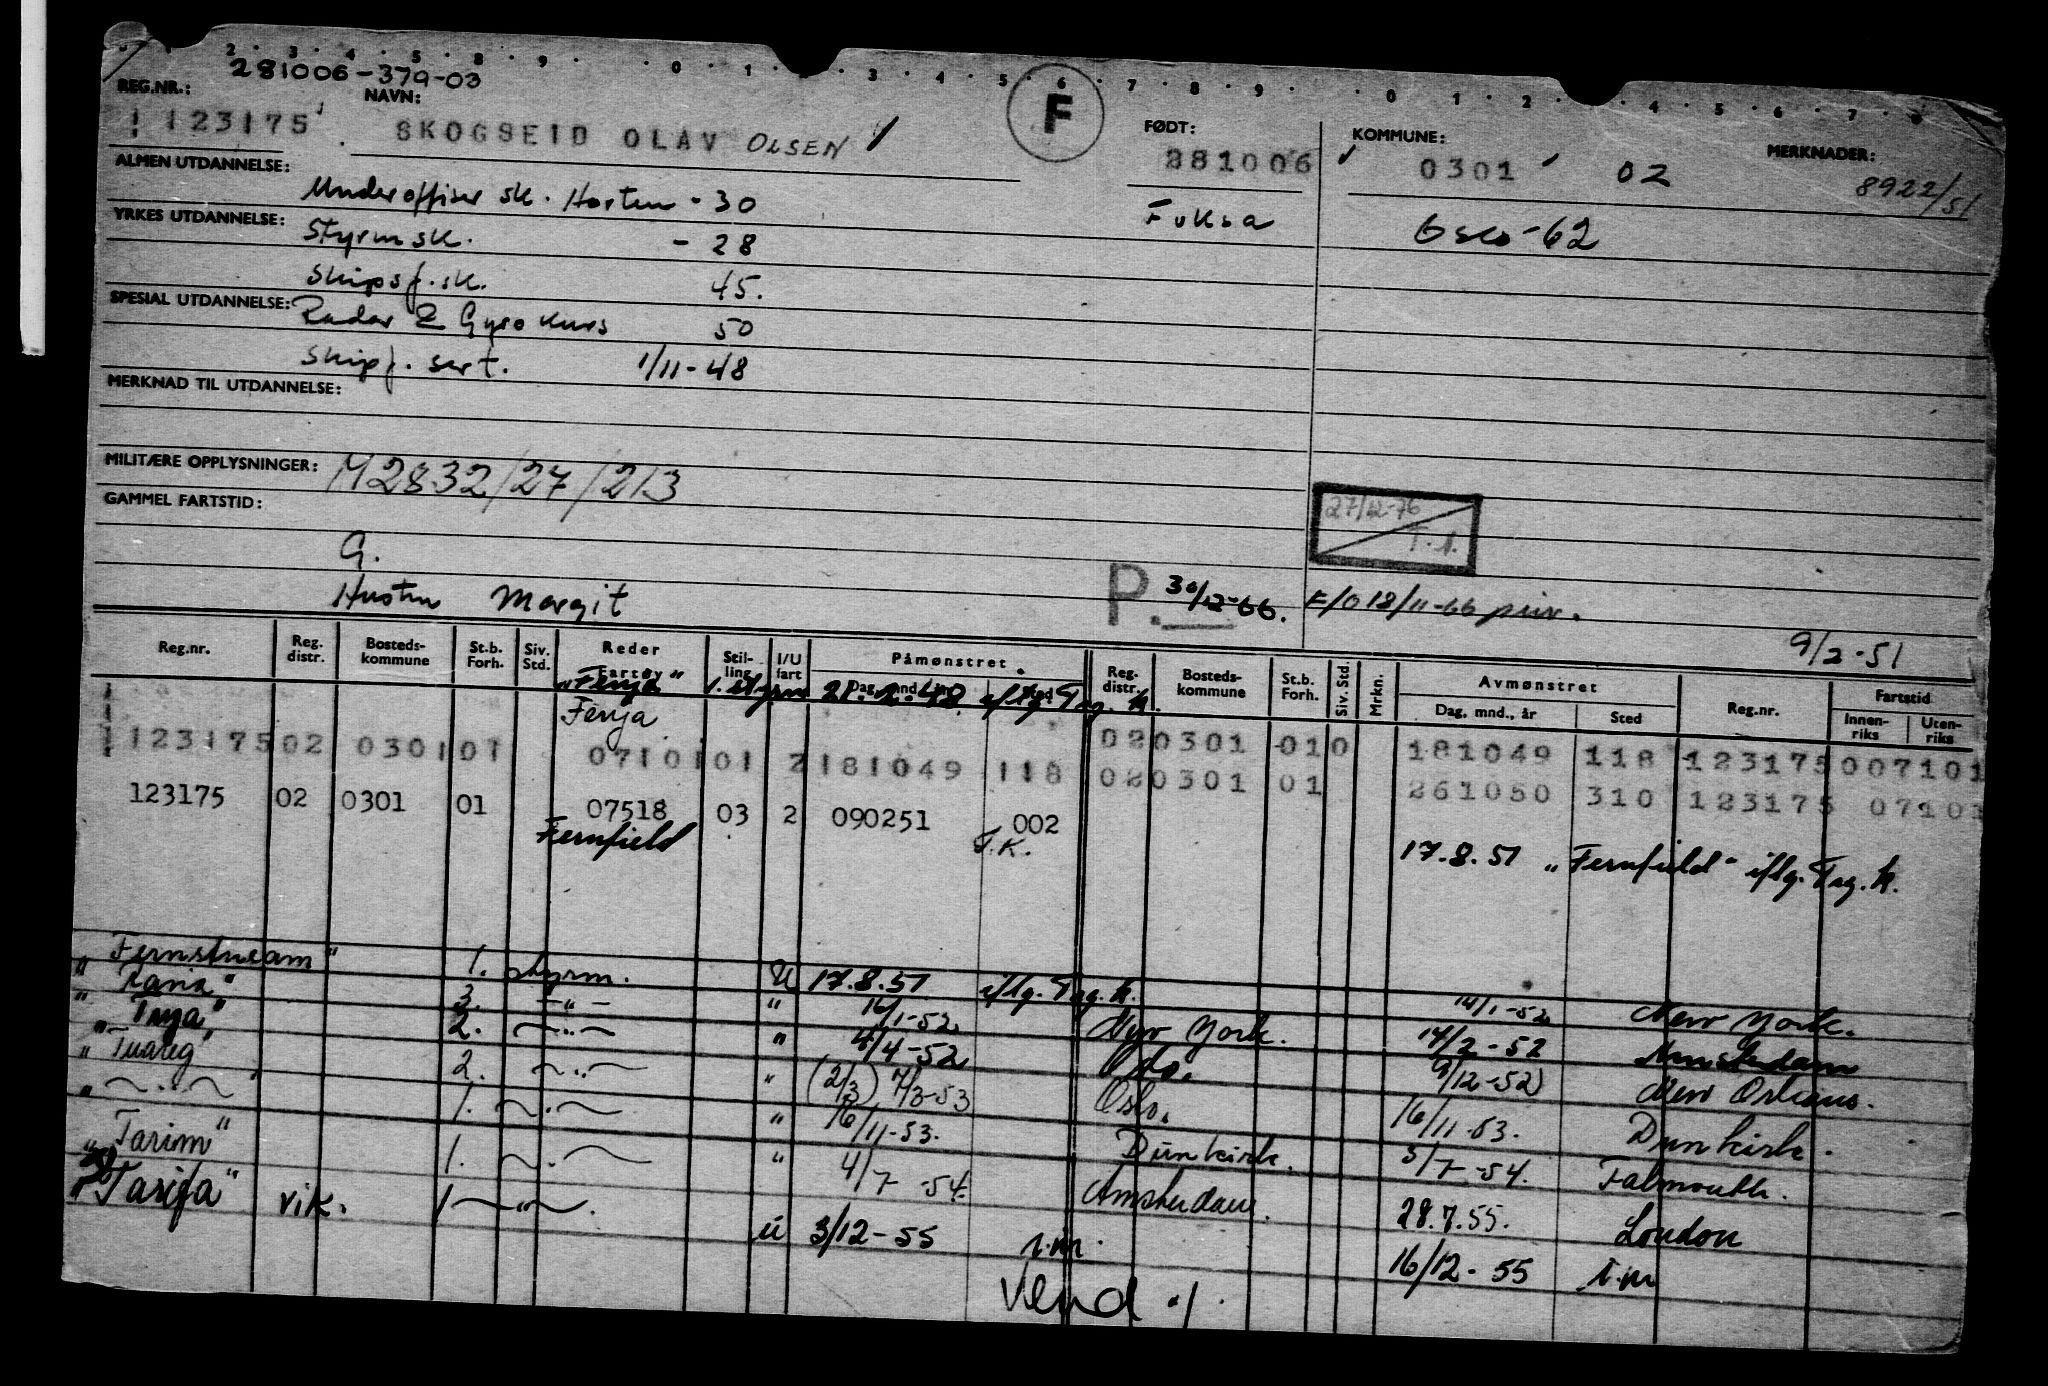 281006-379-03
REG.NR.: NAVN:
123175 SKOGSEID OLAV OLSEN
F
FØDT: 281006
KOMMUNE: 0301 02
MERKNADER: 8922/51
ALMEN UTDANNELSE: Underoffiser sk. Horten - 30
Oslo - 62
YRKES UTDANNELSE: Styrmsk. - 28
Skipsf.sk. 45.
SPESIAL UTDANNELSE: Radar & Gyro kurs 50
Skipsf. sert. 1/11-48
MERKNAD TIL UTDANNELSE:
MILITÆRE OPPLYSNINGER: M2832/27/213
GAMMEL FARTSTID:
27/12-76
G.
Hustru Margit
P. 30/12-66. F/O 18/11-66
9/2-51
Reg.nr. Reg. distr. Bosteds-kommune St.b. Forh. Siv. Std. Reder Fartøy Stil-ling I/U fart Påmønstret Dag, mnd., år Sted Reg. distr. Bosteds-kommune St.b. Forh. Siv. Std. Mrkn. Avmønstret Dag, mnd., år Sted Reg.nr. Fartstid Innen-riks Uten-riks
"Fenja" 1. styrm 21.2.48 iflg. Trg. k.
Fenja
123175 02 0301 01 07101 01 2 181049 118 02 0301 01 0 181049 118 123175 007101
02 0301 01 261050 310 123175 07101
123175 02 0301 01 07518 03 2 090251 002
Fernfield T.K.
17.8.51 "Fernfield" iflg. Trg. k.
"Fernstream" 1. styrm. U 17.8.51 iflg. Trg. k. 14/1-52 New York.
3. -"- " 16/1-52 New York. 14/2-52 Amsterdam
2. -"- " 4/4-52 Oslo. 9/12-52 New Orleans.
"Tuareg" 2. -"- " (2/3) 7/3-53 Oslo. 16/11-53. Dunkirk.
" -"- " 1. -"- " 16/11-53. Dunkirk. 3/7-54. Falmouth.
"Tarim" 1. -"- " 4/7-54. Amsterdam. 28.7.55. London
"Tarifa" vik. 1 -"-. U 3/12-55 i.m. 16/12-55 i.m
Vend ./.